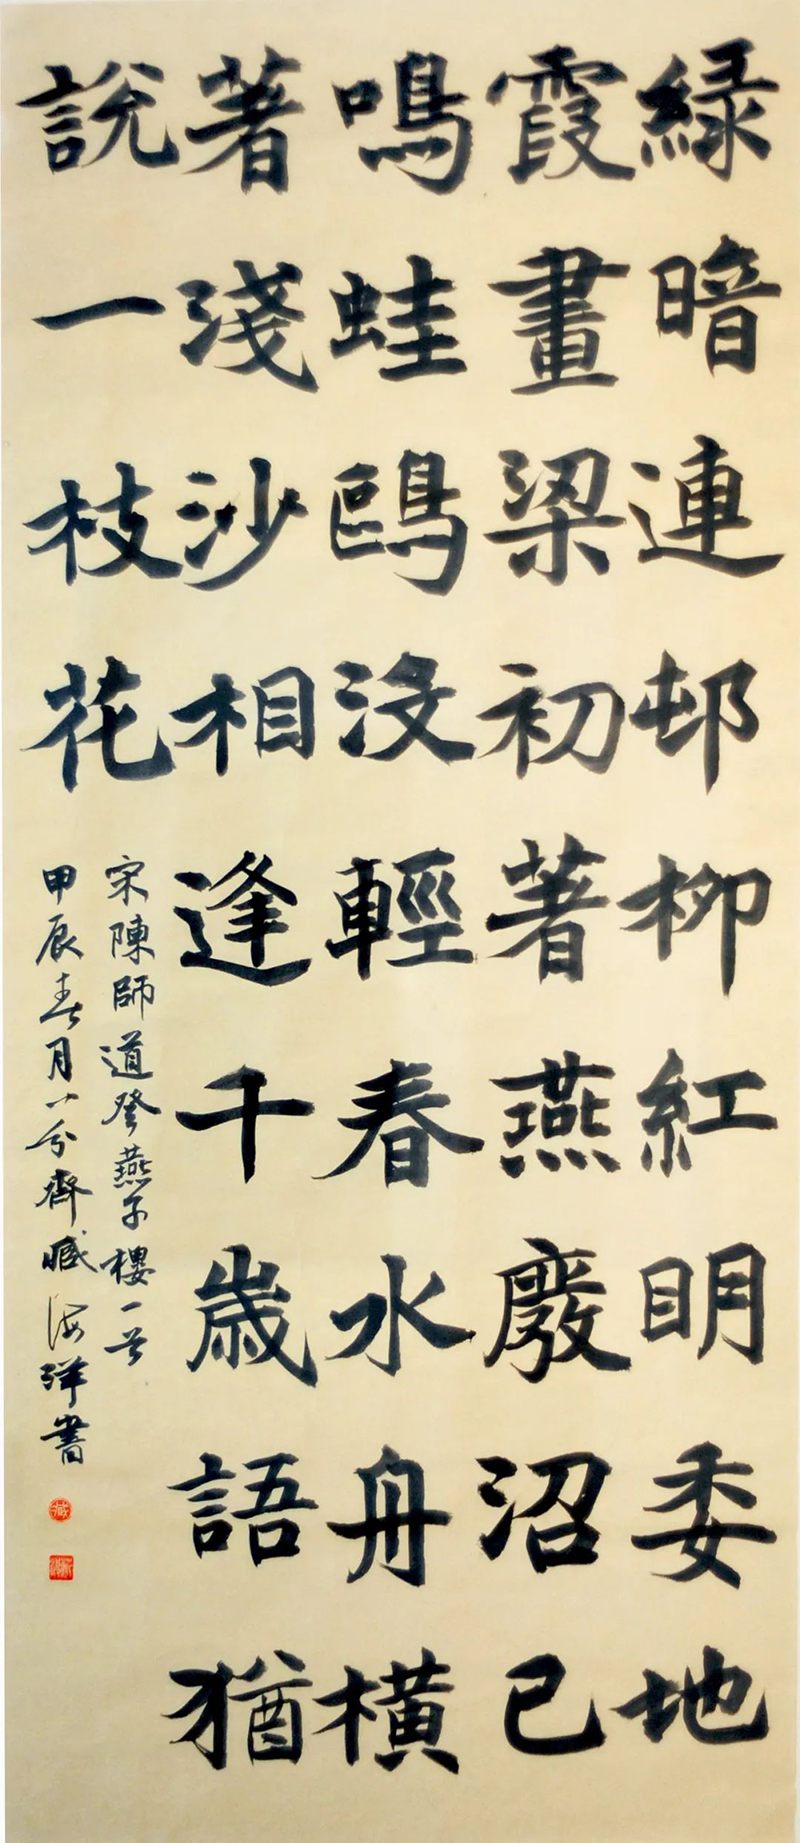 綠暗連邨栁紅眀委地
霞畫梁初著燕廢沼已
鳴蛙鷗沒輕春水舟橫
著淺沙相逢千歲語猶
說一枝花
宋陳師道登燕子樓一首
甲辰春月八分齋臧海洋書